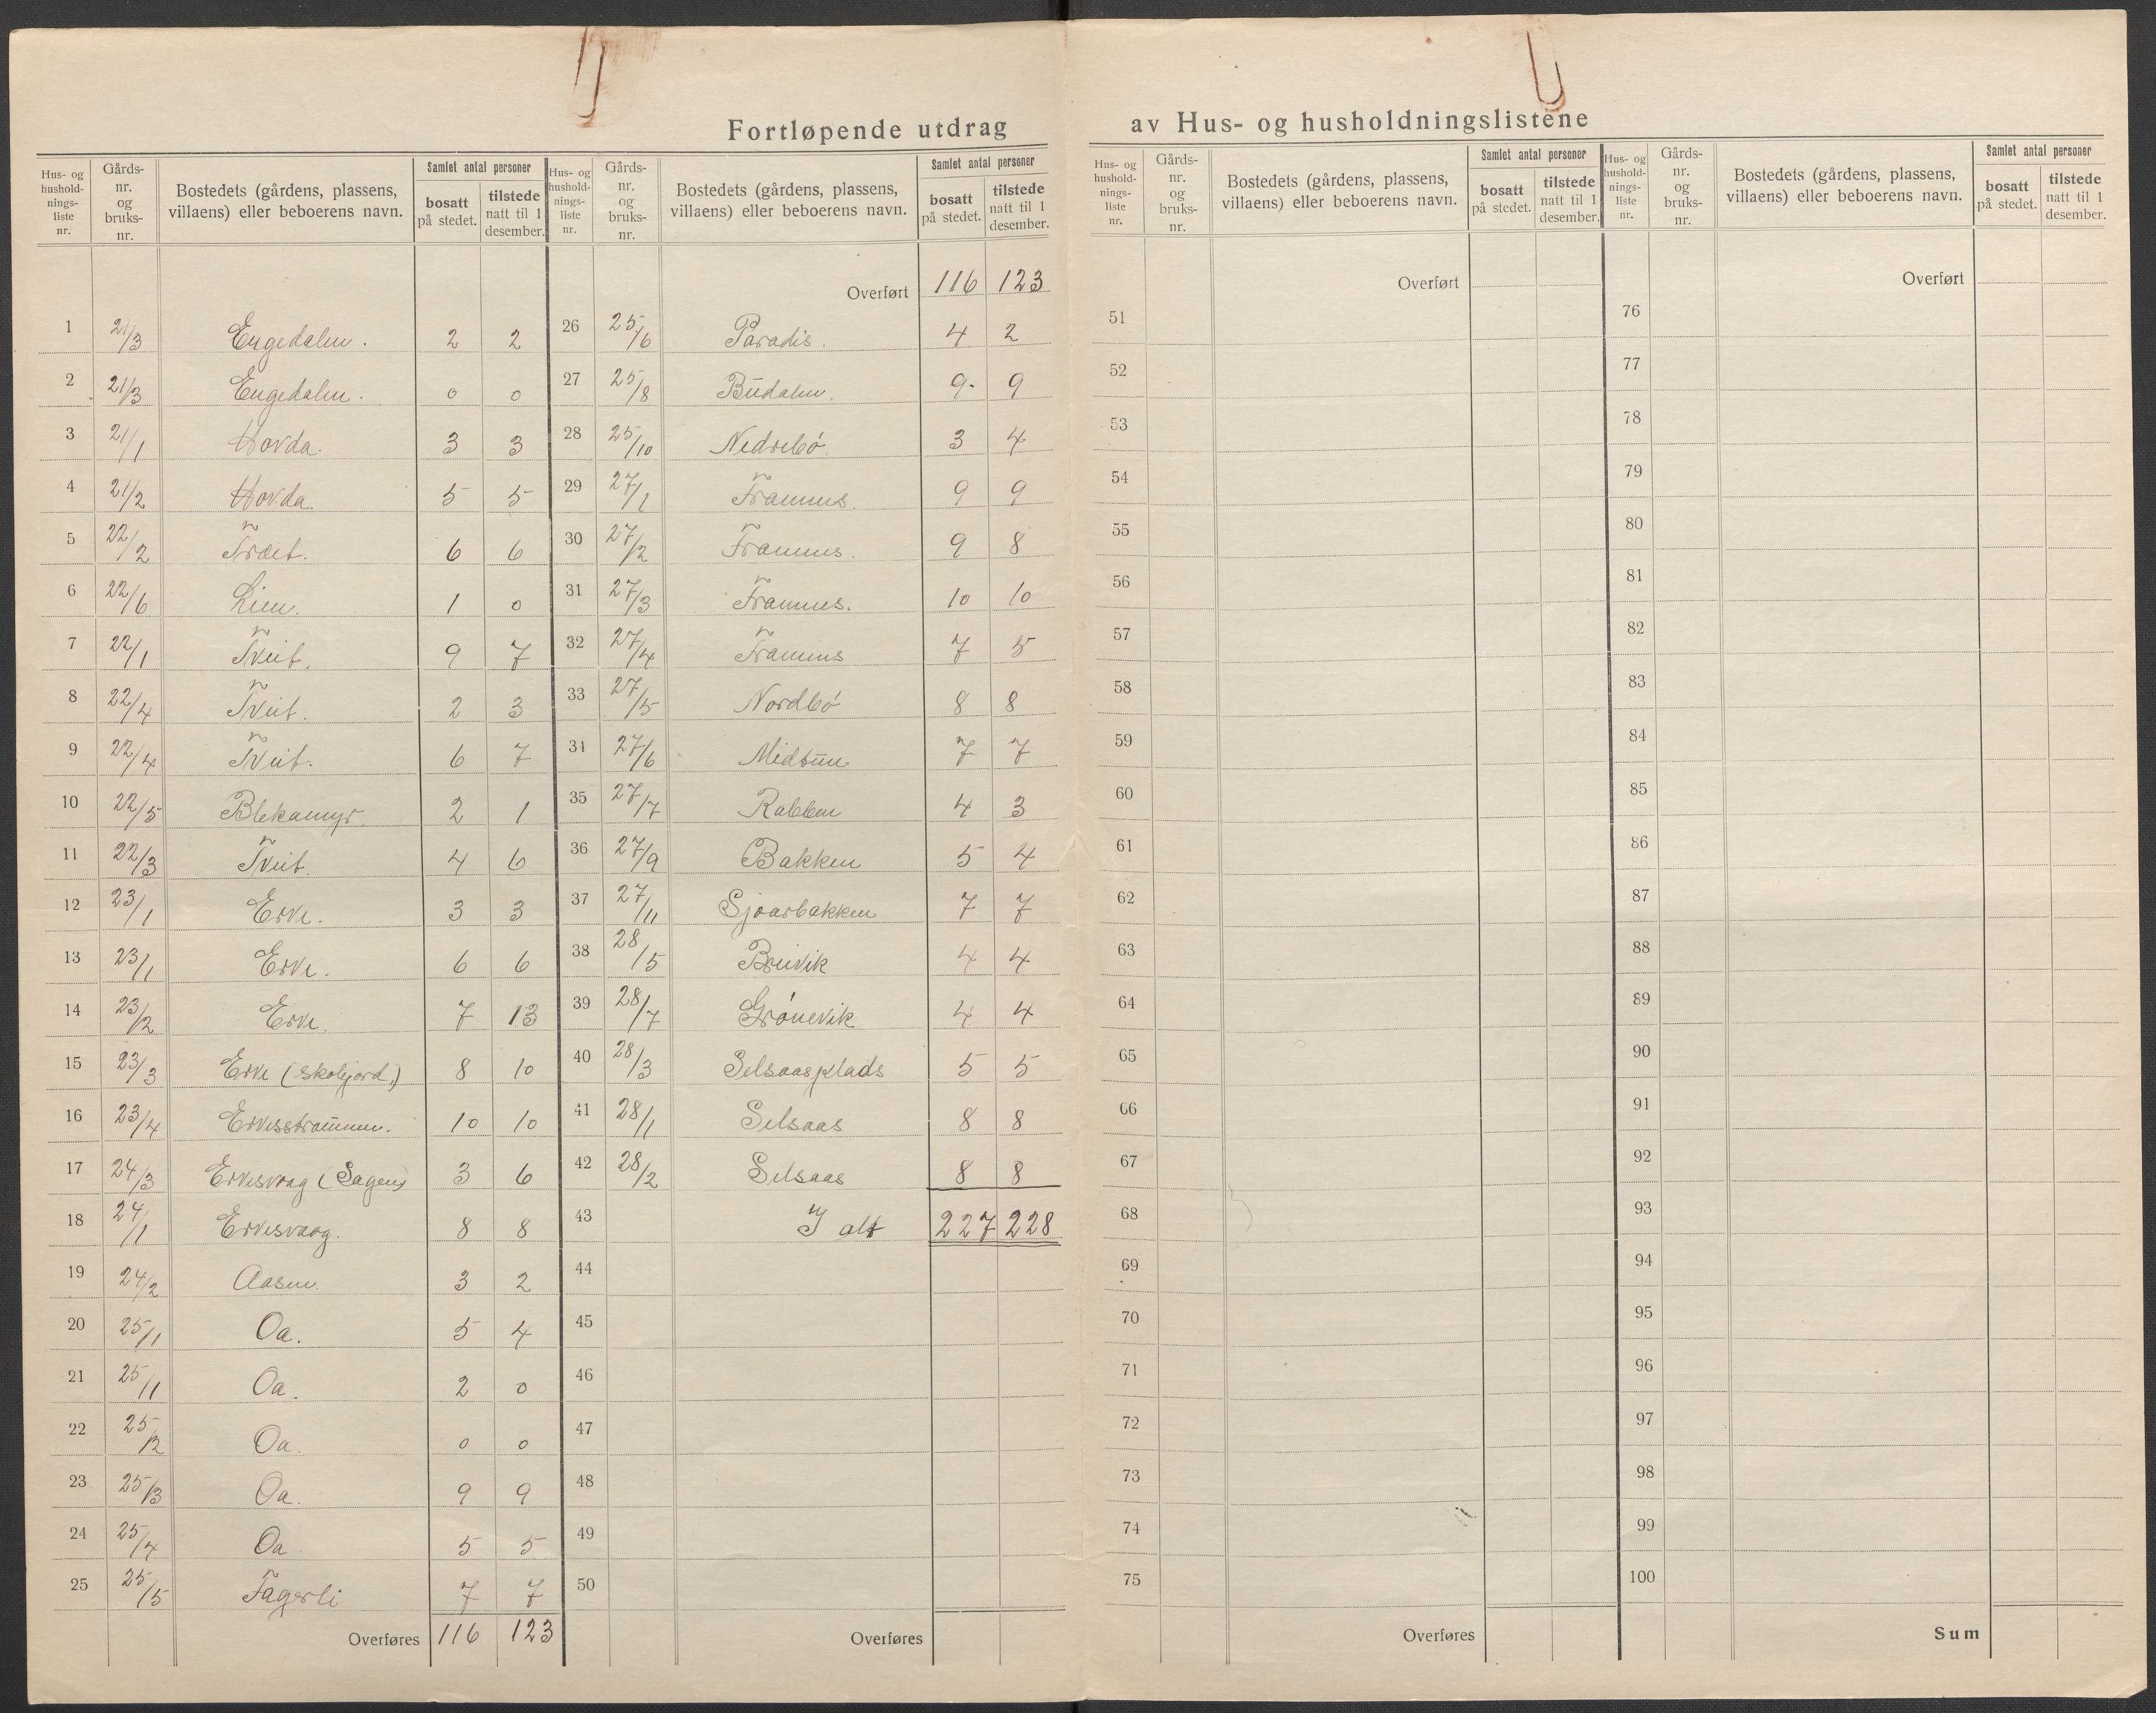 Fortløpende utdrag av Hus- og husholdningslistene
Hus- og hushold-nings-liste nr. | Gårds-nr. og bruks-nr. | Bostedets (gårdens, plassens, villaens) eller beboerens navn. | Samlet antal personer | bosatt på stedet. | tilstede natt til 1 desember.
1 21/3 Engedalen. 2 2
2 21/3 Engedalen. 0 0
3 21/1 Hovda. 3 3
4 21/2 Hovda. 5 5
5 22/2 Træet. 6 6
6 22/6 Lien. 1 0
7 22/1 Tveit. 9 7
8 22/4 Tveit. 2 3
9 22/4 Tveit. 6 7
10 22/5 Blekamyr. 2 1
11 22/3 Tveit. 4 6
12 23/1 Erve. 3 3
13 23/1 Erve. 6 6
14 23/2 Erve. 7 13
15 23/3 Erve (skolejord.) 8 10
16 23/4 Ervesstrømmen. 10 10
17 24/3 Ervesvaag (Sagen) 3 6
18 24/1 Ervesvaag. 8 8
19 24/2 Aasen. 3 2
20 25/1 Oa. 5 4
21 25/11 Oa. 2 0
22 25/2 Oa. 0 0
23 25/3 Oa. 9 9
24 25/4 Oa 5 5
25 25/5 Fagerli 7 7
Overføres 116 123
Hus- og hushold-nings-liste nr. | Gårds-nr. og bruks-nr. | Bostedets (gårdens, plassens, villaens) eller beboerens navn. | Samlet antal personer | bosatt på stedet. | tilstede natt til 1 desember.
Overført 116 123
26 25/6 Paradis. 4 2
27 25/8 Budalen. 9 9
28 25/10 Nedrebø. 3 4
29 27/1 Framnes. 9 9
30 27/2 Framnes. 9 8
31 27/3 Framnes. 10 10
32 27/4 Framnes 7 5
33 27/5 Nordbø 8 8
34 27/6 Midtun 7 7
35 27/7 Rabben 4 3
36 27/9 Bakken 5 4
37 27/11 Sjoarbakken 7 7
38 28/5 Breivik 4 4
39 28/7 Grønevik 4 4
40 28/3 Selsaasplads 5 5
41 28/1 Selsaas 8 8
42 28/2 Selsaas 8 8
43 I alt 227 228
44
45
46
47
48
49
50
Overføres
Hus- og hushold-nings-liste nr. | Gårds-nr. og bruks-nr. | Bostedets (gårdens, plassens, villaens) eller beboerens navn. | Samlet antal personer | bosatt på stedet. | tilstede natt til 1 desember.
Overført
51
52
53
54
55
56
57
58
59
60
61
62
63
64
65
66
67
68
69
70
71
72
73
74
75
Overføres
Hus- og hushold-nings-liste nr. | Gårds-nr. og bruks-nr. | Bostedets (gårdens, plassens, villaens) eller beboerens navn. | Samlet antal personer | bosatt på stedet. | tilstede natt til 1 desember.
Overført
76
77
78
79
80
81
82
83
84
85
86
87
88
89
90
91
92
93
94
95
96
97
98
99
100
Sum